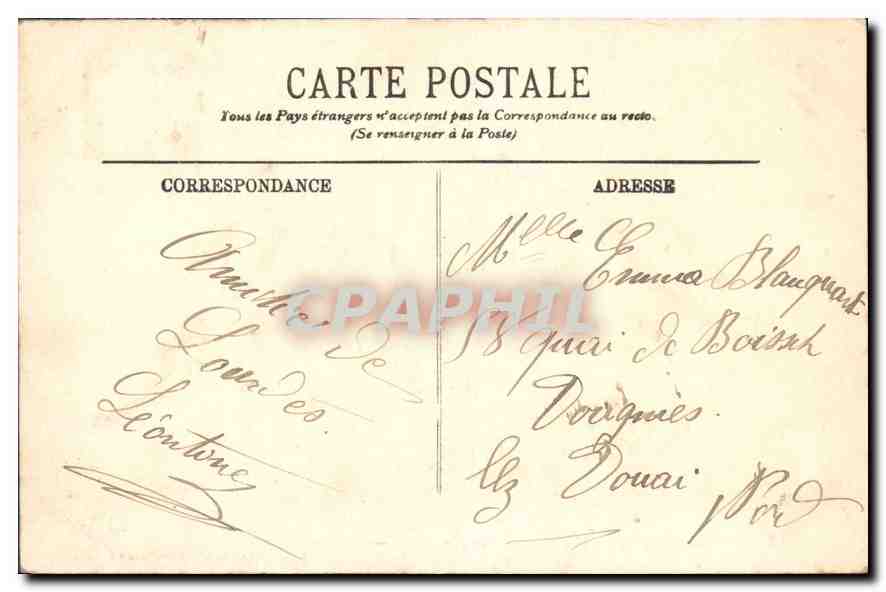 CARTE POSTALE
Tous les Pays étrangers n'acceptent pas la Correspondance au recto.
(Se renseigner à la Poste)
CORRESPONDANCE
Amitiés de
Lourdes.
Léontine
ADRESSE
Melle
Emma Blanquart
58 quai de
Dorignies.
lez Douai
Nord
CPAPHIL